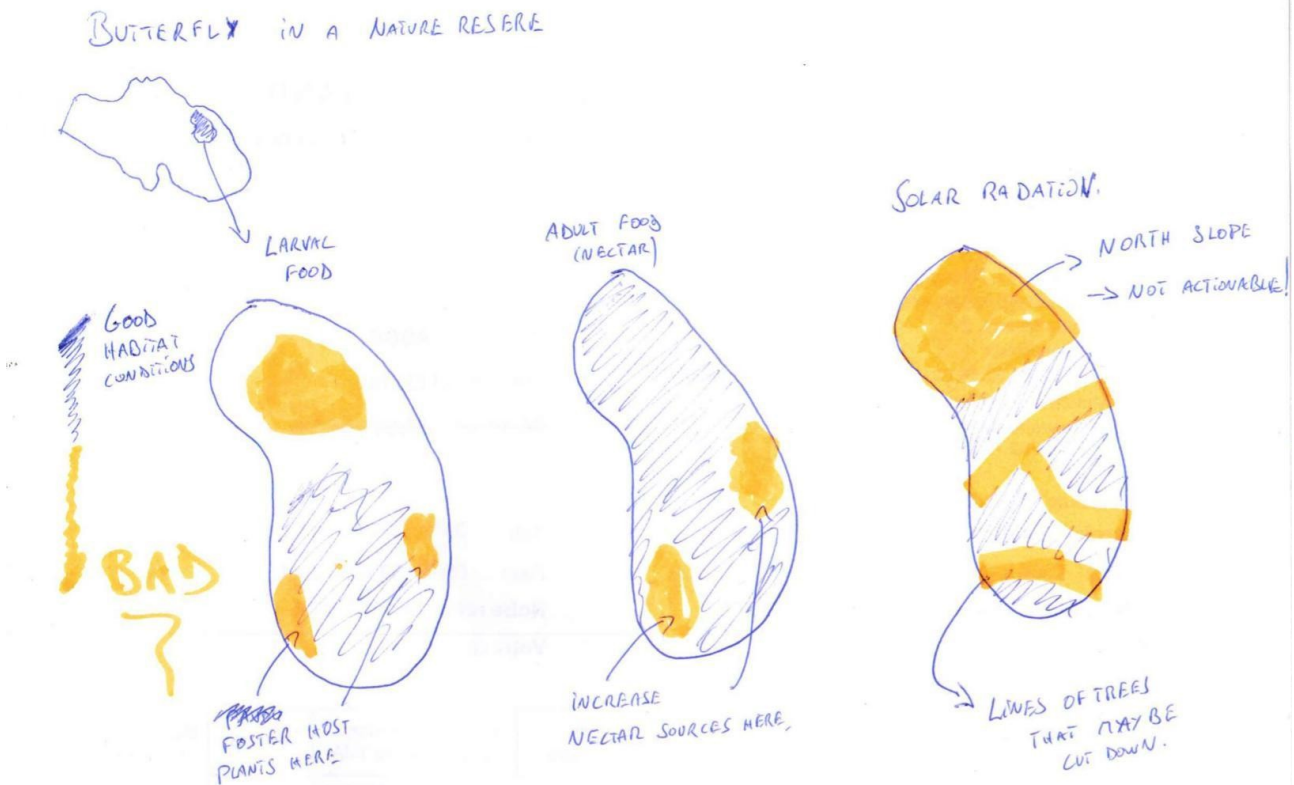 BUTTERFLY IN A NATURE RESERE
LARVAL
FOOD
GOOD
HABITAT
CONDITIONS
BAD
FOSTER HOST
PLANTS HERE
ADULT FOOD
(NECTAR)
INCREASE
NECTAR SOURCES HERE,
SOLAR RADATION.
NORTH SLOPE
→ NOT ACTIONABLE!
LINES OF TREES
THAT MAY BE
CUT DOWN.